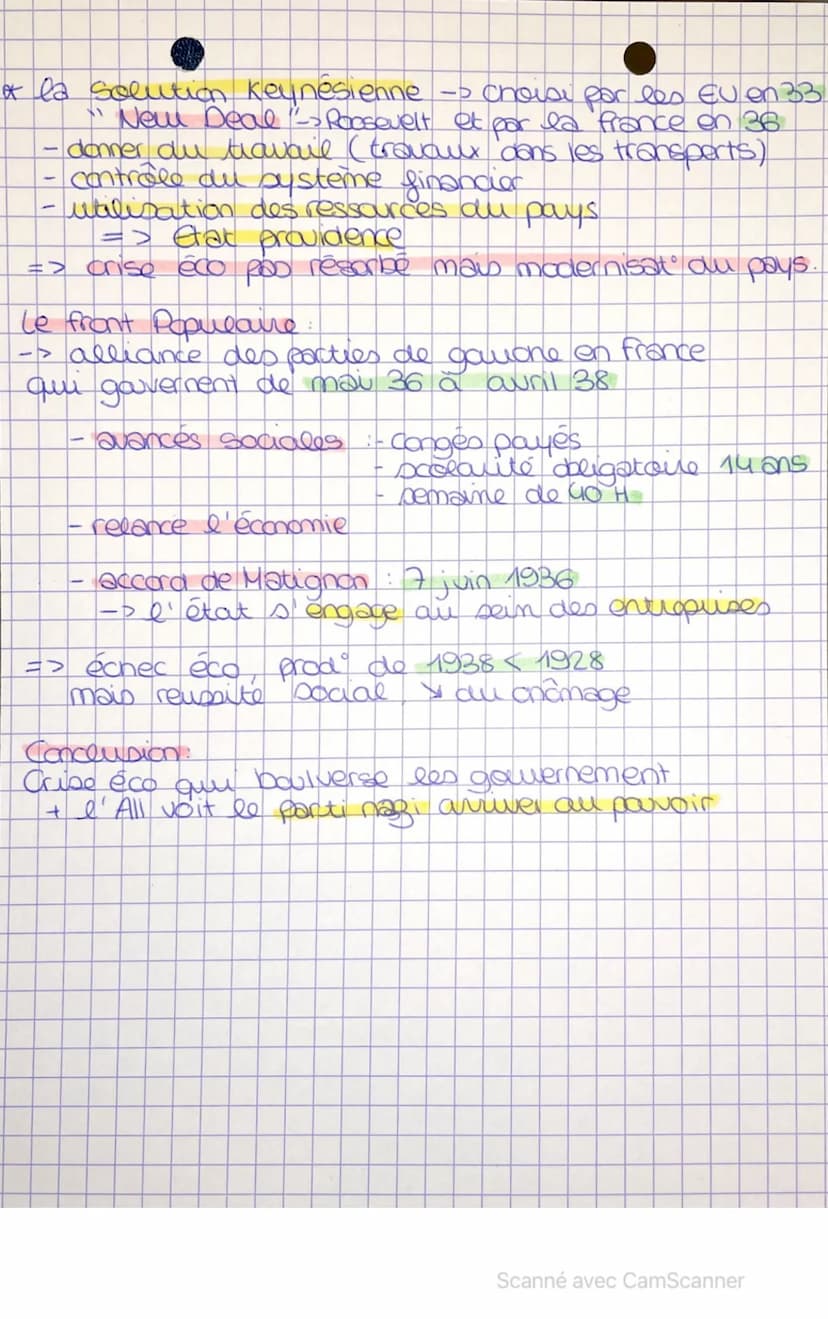 * la solution Keynésienne -> choisi par les EU en 33
" New Deal " -> Roosevelt et par la france en 36
- donner du travail (travaux dans les transports)
- contrôle du système financier
- utilisation des ressources du pays
=> État providence
=> crise éco pas résorbé mais modernisat° du pays.
Le front Populaire :
-> alliance des parties de gauche en france
qui gouvernent de mai 36 à avril 38
- avancés sociales : - congés payés
- scolarité obligatoire 14 ans
- semaine de 40 H
- relance l'économie
- accord de Matignon : 7 juin 1936
-> l'état s'engage au sein des entreprises
=> échec éco, prod° de 1938 < 1928
mais reussite social, ↘ du chômage
Conclusion:
Crise éco qui boulverse les gouvernement
+ l'All voit le parti nazi arriver au pouvoir
Scanné avec CamScanner